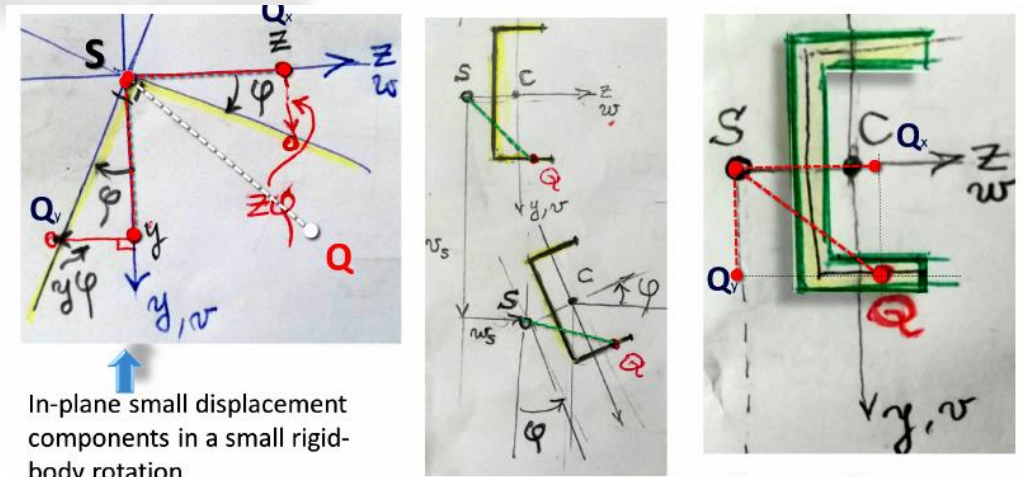 Qx
S
Z
Z
w
φ
φ
Qy
y
zφ
Q
yφ
y, v
In-plane small displacement
components in a small rigid-
body rotation
S
C
z
w
Q
y, v
vs
C
φ
S
ws
Q
φ
S
C
Qx
Z
w
Qy
Q
y, v